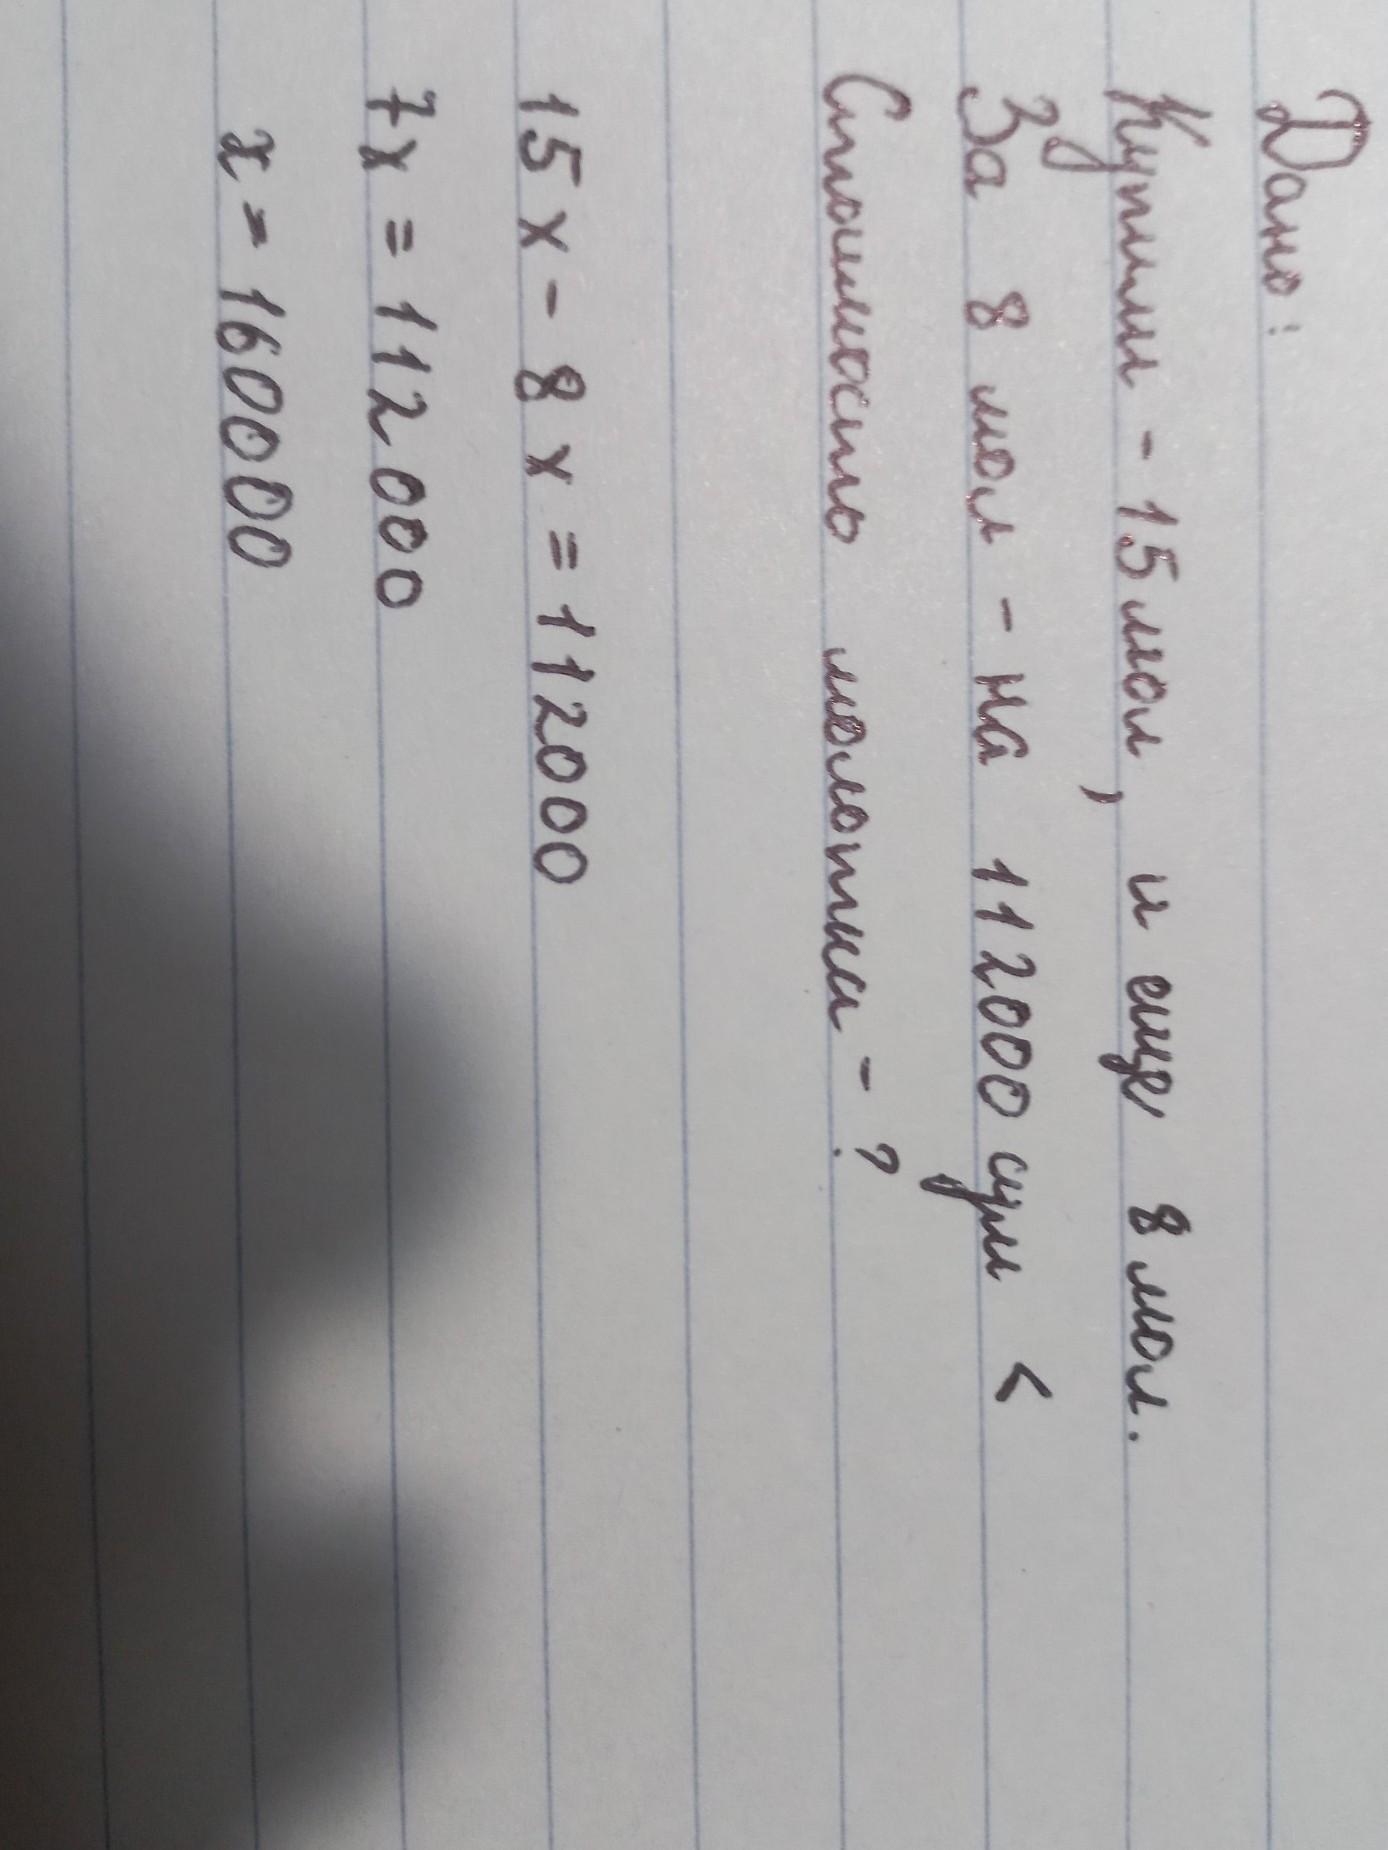 Дано:
Купили - 15 мол, и еще 8 мол.
За 8 мол - на 112000 сум <
Стоимость молотка - ?
15x - 8x = 112000
7x = 112000
x = 16000